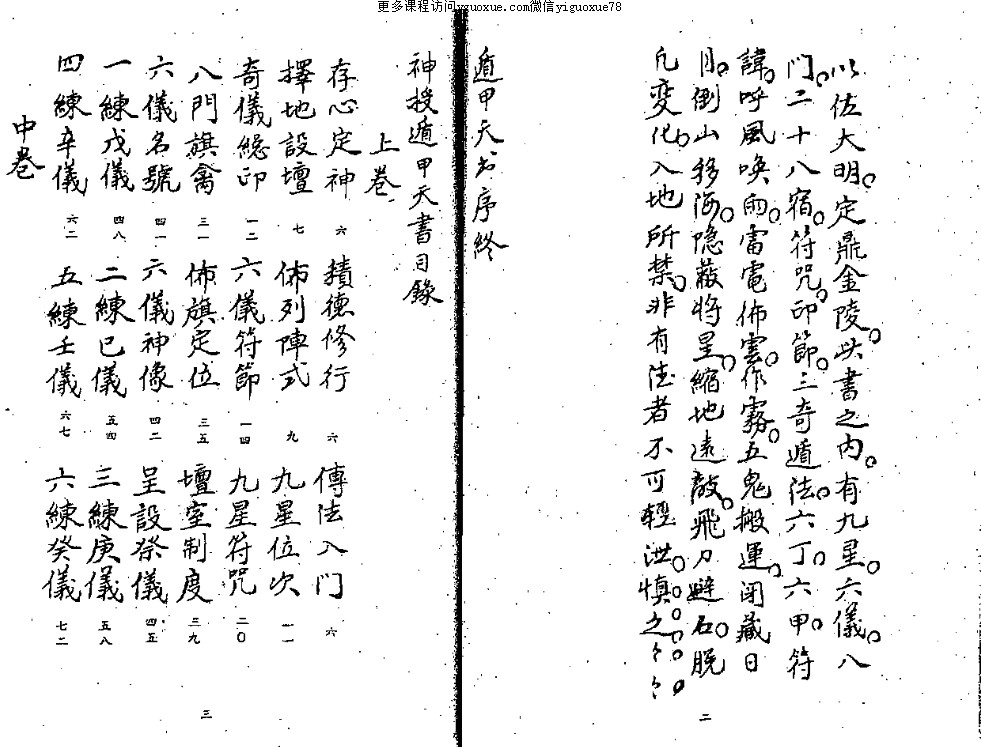 更多课程访问yiguoxue.com微信yiguoxue78
以佐大明。定鼎金陵。此書之內。有九星。六儀。八
門。二十八宿。符咒。印節。三奇遁法。六丁。六甲。符
諱。呼風喚雨。雷電佈雲。作霧。五鬼搬運。闭藏日
月。倒山移海。隐蔽將星。縮地遠敵。飛刀避石。脫
凡變化。入地所禁。非有法者不可輕洪。慎之々々。
二
遁甲天书序終
神授遁甲天書目錄
上卷
存心定神 六 積德修行 六 傳法入门 六
擇地設壇 七 佈列陣式 九 九星位次 一一
奇儀總印 一二 六儀符節 一四 九星符咒 二〇
八門旗禽 三一 佈旗定位 三五 壇室制度 三九
六儀名號 四一 六儀神像 四二 呈設祭儀 四五
一練戊儀 四八 二練巳儀 五四 三練庚儀 五八
四練辛儀 六二 五練壬儀 六七 六練癸儀 七二
中卷
三